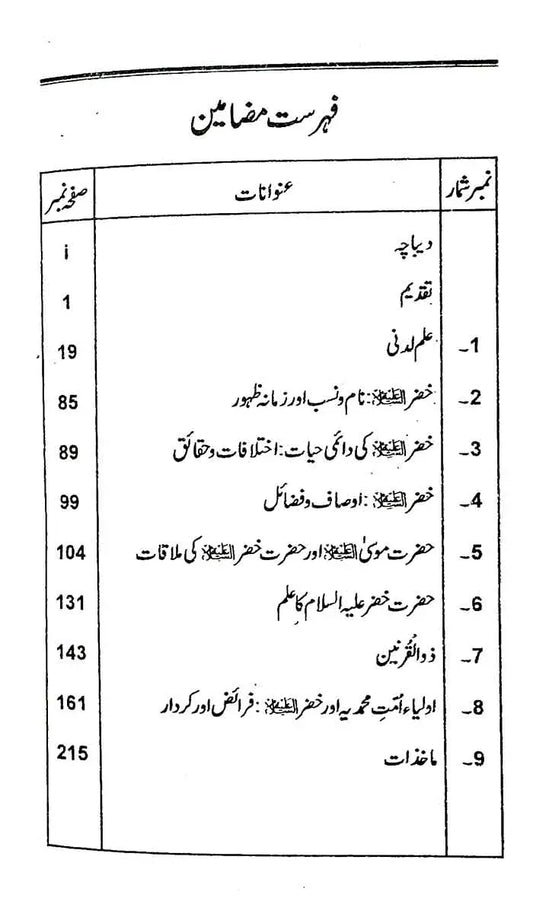 فہرست مضامین
نمبر شمار عنوانات صفحہ نمبر
دیباچہ i
تقدیم 1
1۔ علم لدنی 19
2۔ خضر علیہ السلام: نام و نسب اور زمانہ ظہور 85
3۔ خضر علیہ السلام کی دائمی حیات: اختلافات و حقائق 89
4۔ خضر علیہ السلام: اوصاف و فضائل 99
5۔ حضرت موسیٰ علیہ السلام اور حضرت خضر علیہ السلام کی ملاقات 104
6۔ حضرت خضر علیہ السلام کا علم 131
7۔ ذوالقُرنین 143
8۔ اولیاء اُمّتِ محمدیہ اور خضر علیہ السلام: فرائض اور کردار 161
9۔ ماخذات 215